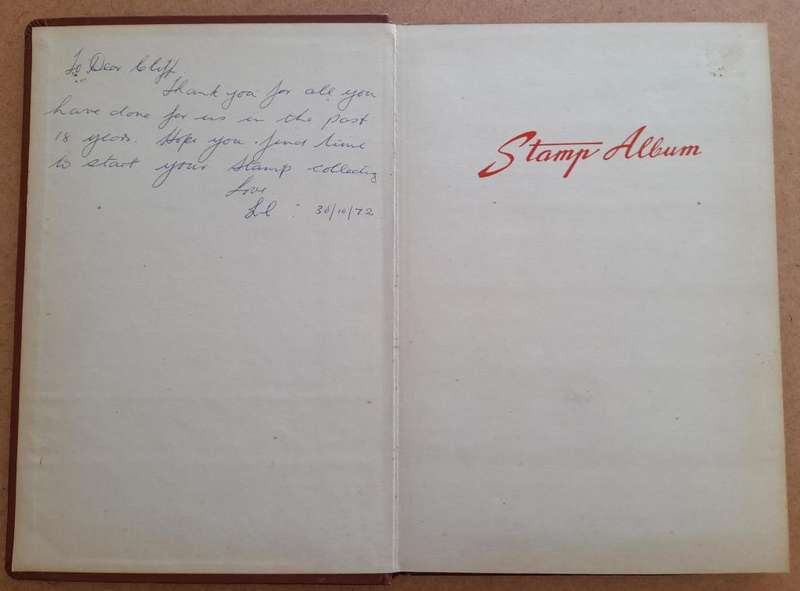 To Dear Cliff,
Thank you for all you
have done for us in the past
18 years. Hope you find time
to start your stamp collecting
Love
30/10/72
Stamp Album